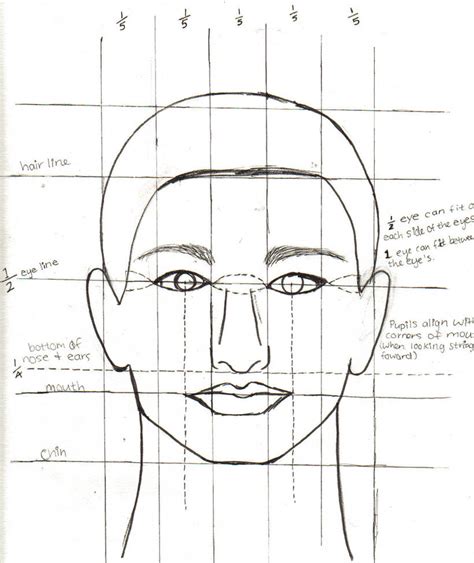 1/5 1/5 1/5 1/5 1/5
hair line
1/2 eye can fit
each side of the eyes
1 eye can fit between
the eye's.
1/2 eye line
Pupils align with
corners of
(when looking
foward)
bottom of
nose + ears
mouth
chin